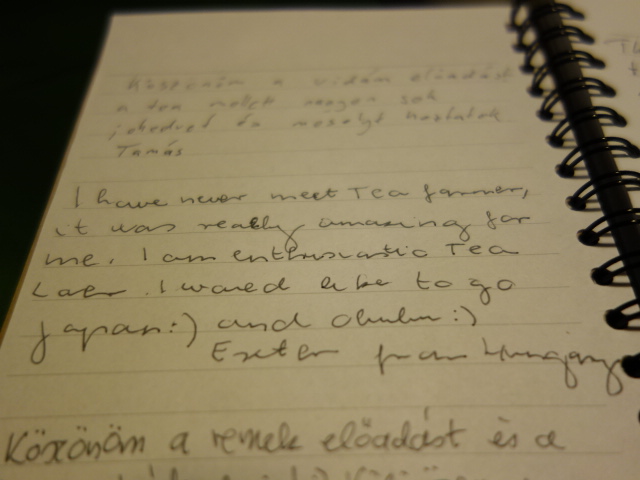 Köszönöm a vidám előadást
a tea mellett nagyon sok
és mosolyt hoztatok
Tamás
I have never meet Tea farmer,
it was really amazing for
me. I am enthusiastic Tea
I would like to go
Japan:) and :)
Eszter from Hungary
Köszönöm a remek előadást és a